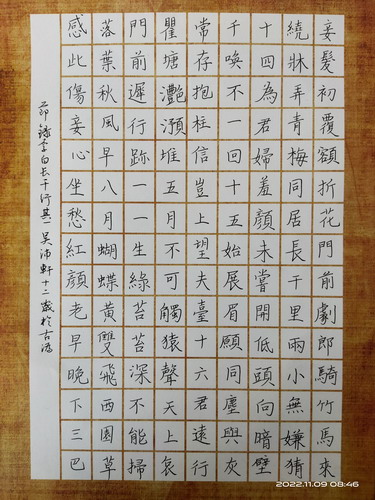 妾髮初覆額折花門前劇郎騎竹馬來
繞牀弄青梅同居長干里兩小無嫌猜
十四為君婦羞顏未嘗開低頭向暗壁
千喚不一回十五始展眉願同塵與灰
常存抱柱信豈上望夫臺十六君遠行
瞿塘灩澦堆五月不可觸猿聲天上哀
門前遲行跡一一生綠苔苔深不能掃
落葉秋風早八月蝴蝶黃雙飛西園草
感此傷妾心坐愁紅顏老早晚下三巴
節錄李白長干行其一 吳沛軒十二歲於古
2022.11.09 08:46